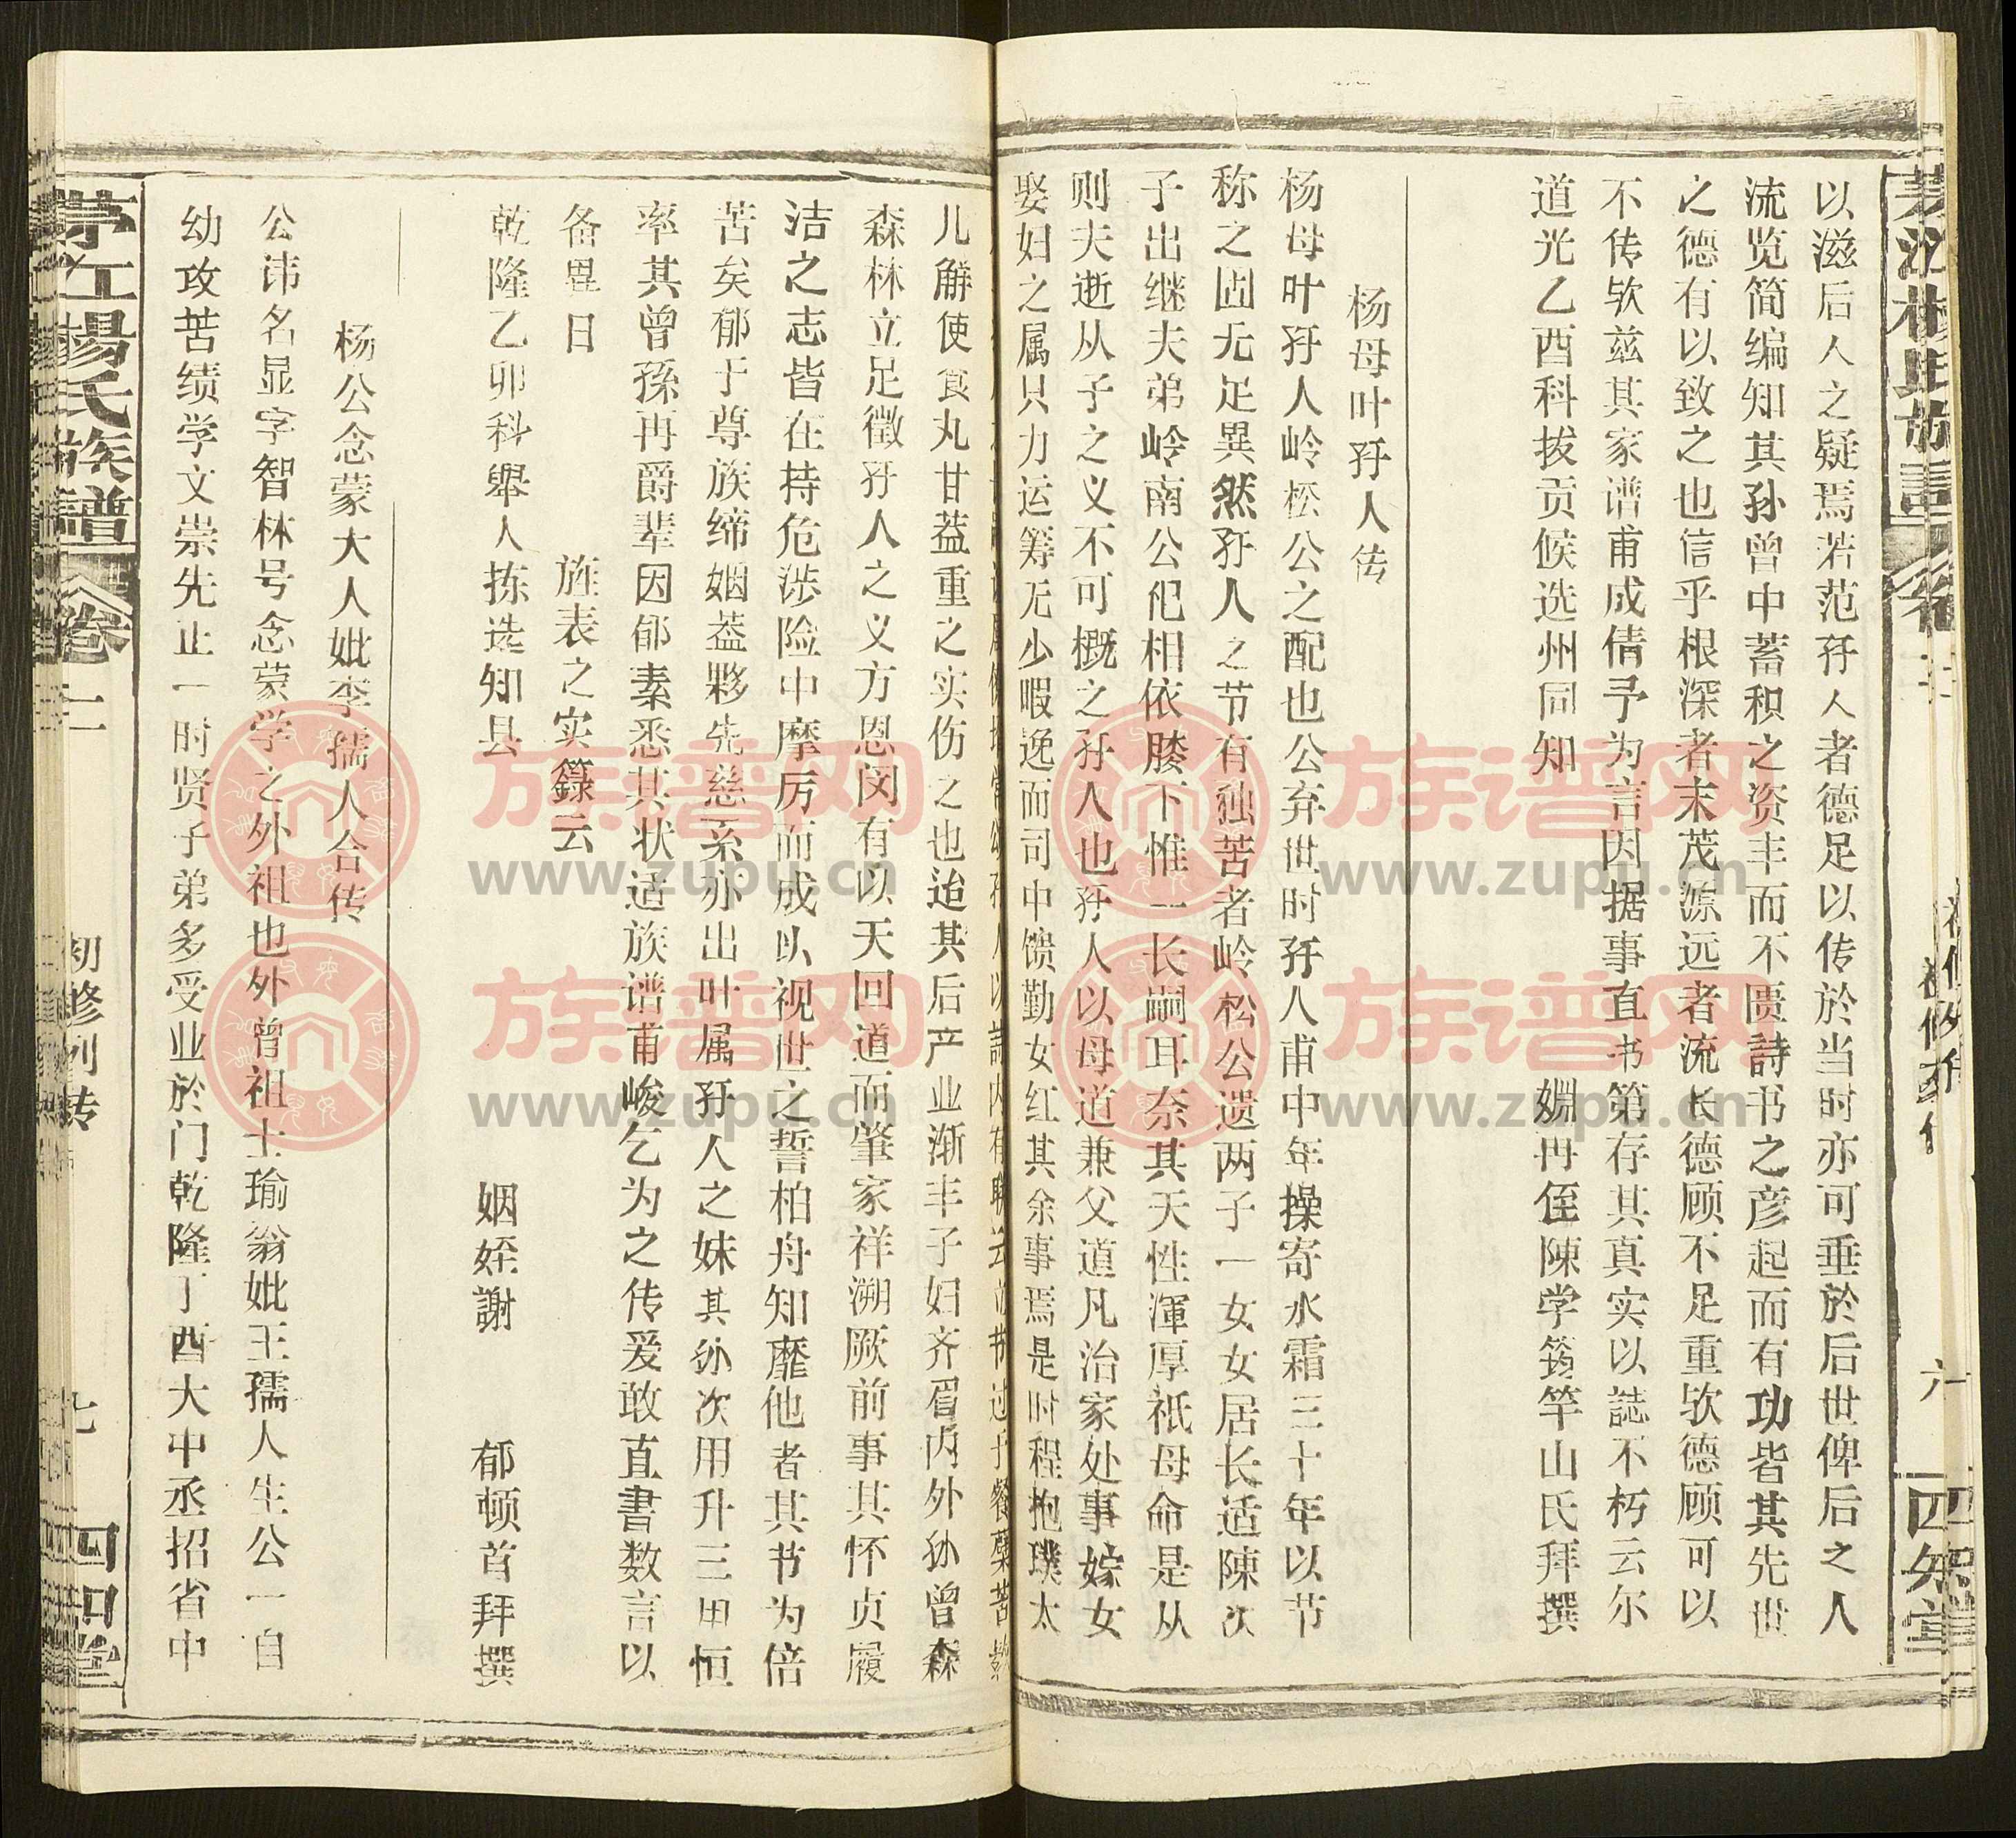 以滋后人之疑焉若范孖人者德足以传於当时亦可垂於后世俾后之人
流览简编知其孙曾中蓄积之资丰而不匮詩书之彦起而有功皆其先世
之德有以致之也信乎根深者末茂源远者流长德顾不足重欤德顾可以
不传欤兹其家谱甫成倩予为言因据事直书第存其真实以誌不朽云尔
道光乙酉科拔贡候选州同知 姻再侄陳学筠竿山氏拜撰
杨母叶孖人传
杨母叶孖人岭松公之配也公弃世时孖人甫中年操寄水霜三十年以节
称之固无足異然孖人之节有独苦者岭松公遗两子一女女居长适陳次
子出继夫弟岭南公祀相依膝下惟一长嗣耳奈其天性渾厚祇母命是从
则夫逝从子之义不可概之孖人也孖人以母道兼父道凡治家处事嫁女
娶妇之属只力运筹无少暇逸而司中馈勤女红其余事焉是时程抱璞太
儿觧使食丸甘益重之实伤之也迨其后产业渐丰子妇齐眉内外孙曾森
森林立足徵孖人之义方恩闵有以天回道而肇家祥溯厥前事其怀贞履
洁之志皆在持危涉险中摩厉而成以视世之誓柏舟知靡他者其书为倍
苦矣郁于尊族缔姻葢夥先慈系亦出叶属孖人之妹其孙次用升三田恒
率其曾孫再爵辈因郁素悉其状适族谱甫峻乞为之传爰敢直書数言以
备異日 旌表之实籙云
乾隆乙卯科舉人拣选知县 姻姪謝 郁顿首拜撰
杨公念蒙大人妣李孺人合传
公讳名显字智林号念蒙学之外祖也外曾祖士瑜翁妣王孺人生公一自
幼攻苦绩学文崇先止一时贤子弟多受业於门乾隆丁酉大中丞招省中
茅江楊氏族譜
卷十一
初修列传
七
四知堂
六
四知堂
族谱网
www.zupu.cn
族谱网
www.zupu.cn
族谱网
www.zupu.cn
族谱网
www.zupu.cn